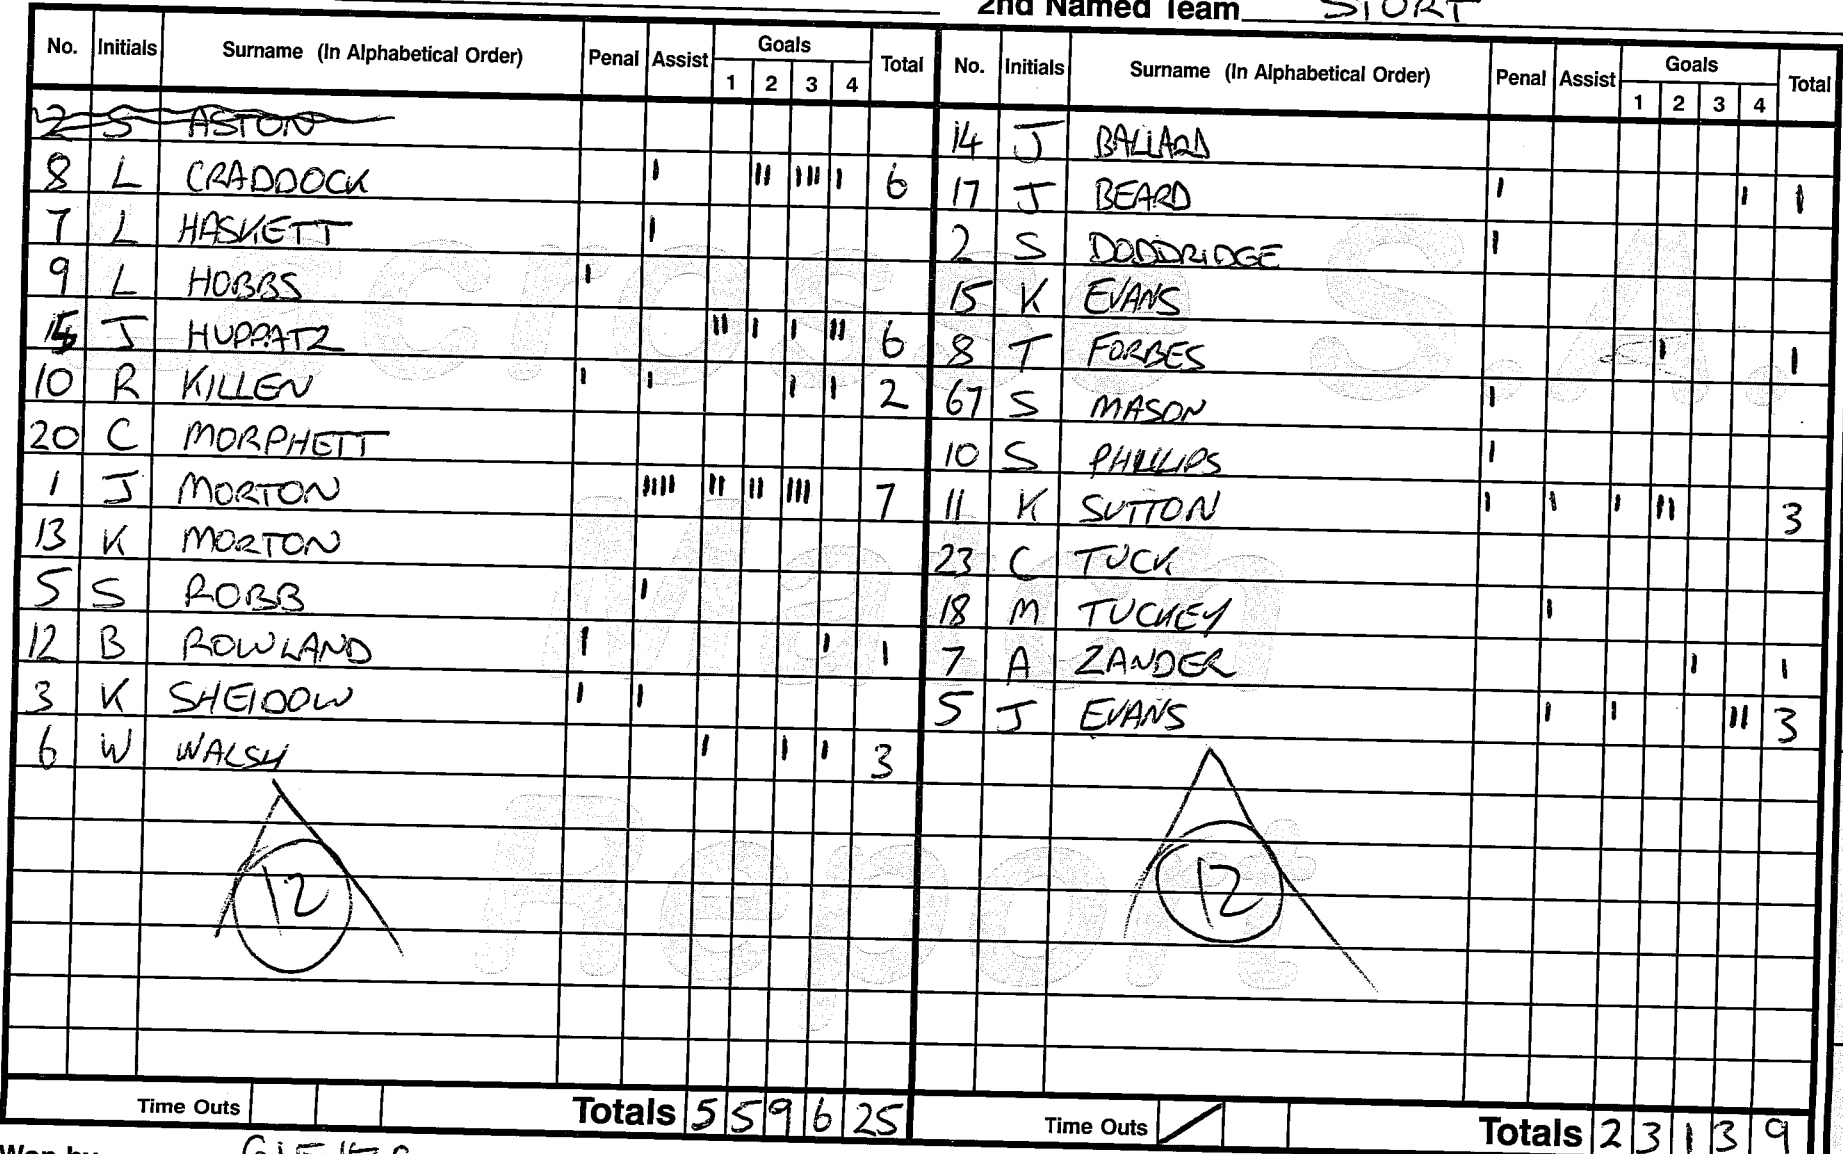 2nd Named Team STURT
No. Initials Surname (In Alphabetical Order) Penal Assist Goals 1 2 3 4 Total
2 S ASTON
8 L CRADDOCK I II III I 6
7 L HASKETT I
9 L HOBBS I
J HUPPATZ II I I II 6
10 R KILLEN I I I I 2
20 C MORPHETT
1 J MORTON IIII II II III 7
13 K MORTON
5 S ROBB I
12 B ROWLAND I I 1
3 K SHEIDOW I I
6 W WALSH I I I 3
12
Time Outs Totals 5 5 9 6 25
No. Initials Surname (In Alphabetical Order) Penal Assist Goals 1 2 3 4 Total
14 J BALLARD
17 J BEARD I I 1
2 S DODDRIDGE I
15 K EVANS
8 T FORBES I 1
67 S MASON I
10 S PHILLIPS I
11 K SUTTON I I I II 3
23 C TUCK
18 M TUCKEY I
7 A ZANDER I 1
5 J EVANS I I II 3
12
Time Outs / Totals 2 3 1 3 9
Lacrosse S.A.
Match
Report
Won by